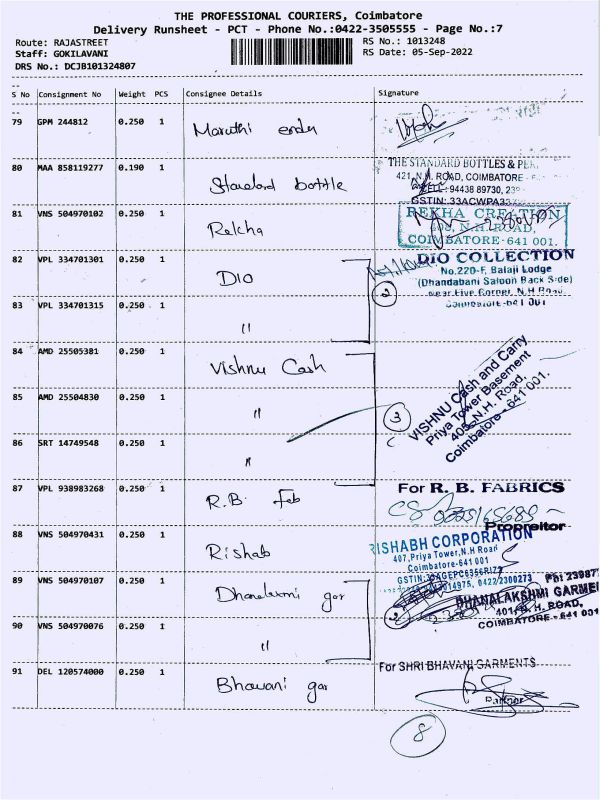 THE PROFESSIONAL COURIERS, Coimbatore
Delivery Runsheet - PCT - Phone No.:0422-3505555 - Page No.:7
Route: RAJASTREET
RS No.: 1013248
Staff: GOKILAVANI
RS Date: 05-Sep-2022
DRS No.: DCJB101324807
S No Consignment No Weight PCS Consignee Details Signature
79 GPM 244812 0.250 1 Maruthi
80 MAA 858119277 0.190 1 Standard bottle
THE STANDARD BOTTLES &
421, N.H. ROAD, COIMBATORE -
CELL: 94438 89730,
GSTIN: 33ACWPA33
81 VNS 504970102 0.250 1 Rekha
REKHA CREATION
408, N.H. ROAD,
COIMBATORE - 641 001.
82 VPL 334701301 0.250 1 DIO
DIO COLLECTION
No.220-F, Balaji Lodge
(Dhandabani Saloon Back Side)
Near Five Corner, N.H Road
Coimbatore-641 001
2
83 VPL 334701315 0.250 1 "
84 AMD 25505381 0.250 1 Vishnu Cash
VISHNU Cash and Carry
Priya Tower Basement
405, N.H. Road,
Coimbatore - 641 001.
85 AMD 25504830 0.250 1 "
3
86 SRT 14749548 0.250 1 "
87 VPL 938983268 0.250 1 R.B. Fab
For R. B. FABRICS
Proprietor
88 VNS 504970431 0.250 1 Rishab
RISHABH CORPORATION
407, Priya Tower, N.H Road
Coimbatore-641 001
GSTIN:33AGEPC6356R1Z7
0422/2300273
89 VNS 504970107 0.250 1 Dhanalaxmi gar
DHANALAKSHMI GARMEN
401, N. H. ROAD,
COIMBATORE - 641 001
2
90 VNS 504970076 0.250 1 "
91 DEL 120574000 0.250 1 Bhavani gar
For SHRI BHAVANI GARMENTS
Partner
8